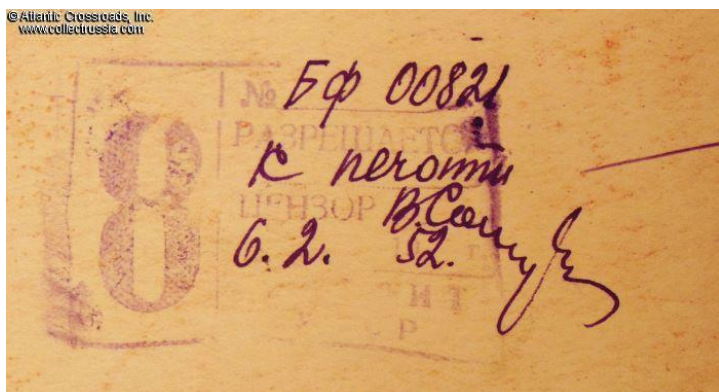 © Atlantic Crossroads, Inc.
www.collectrussia.com
№ БФ 00821
РАЗРЕШАЕТСЯ
к печати
ЦЕНЗОР
6. 2. 52. г.
8